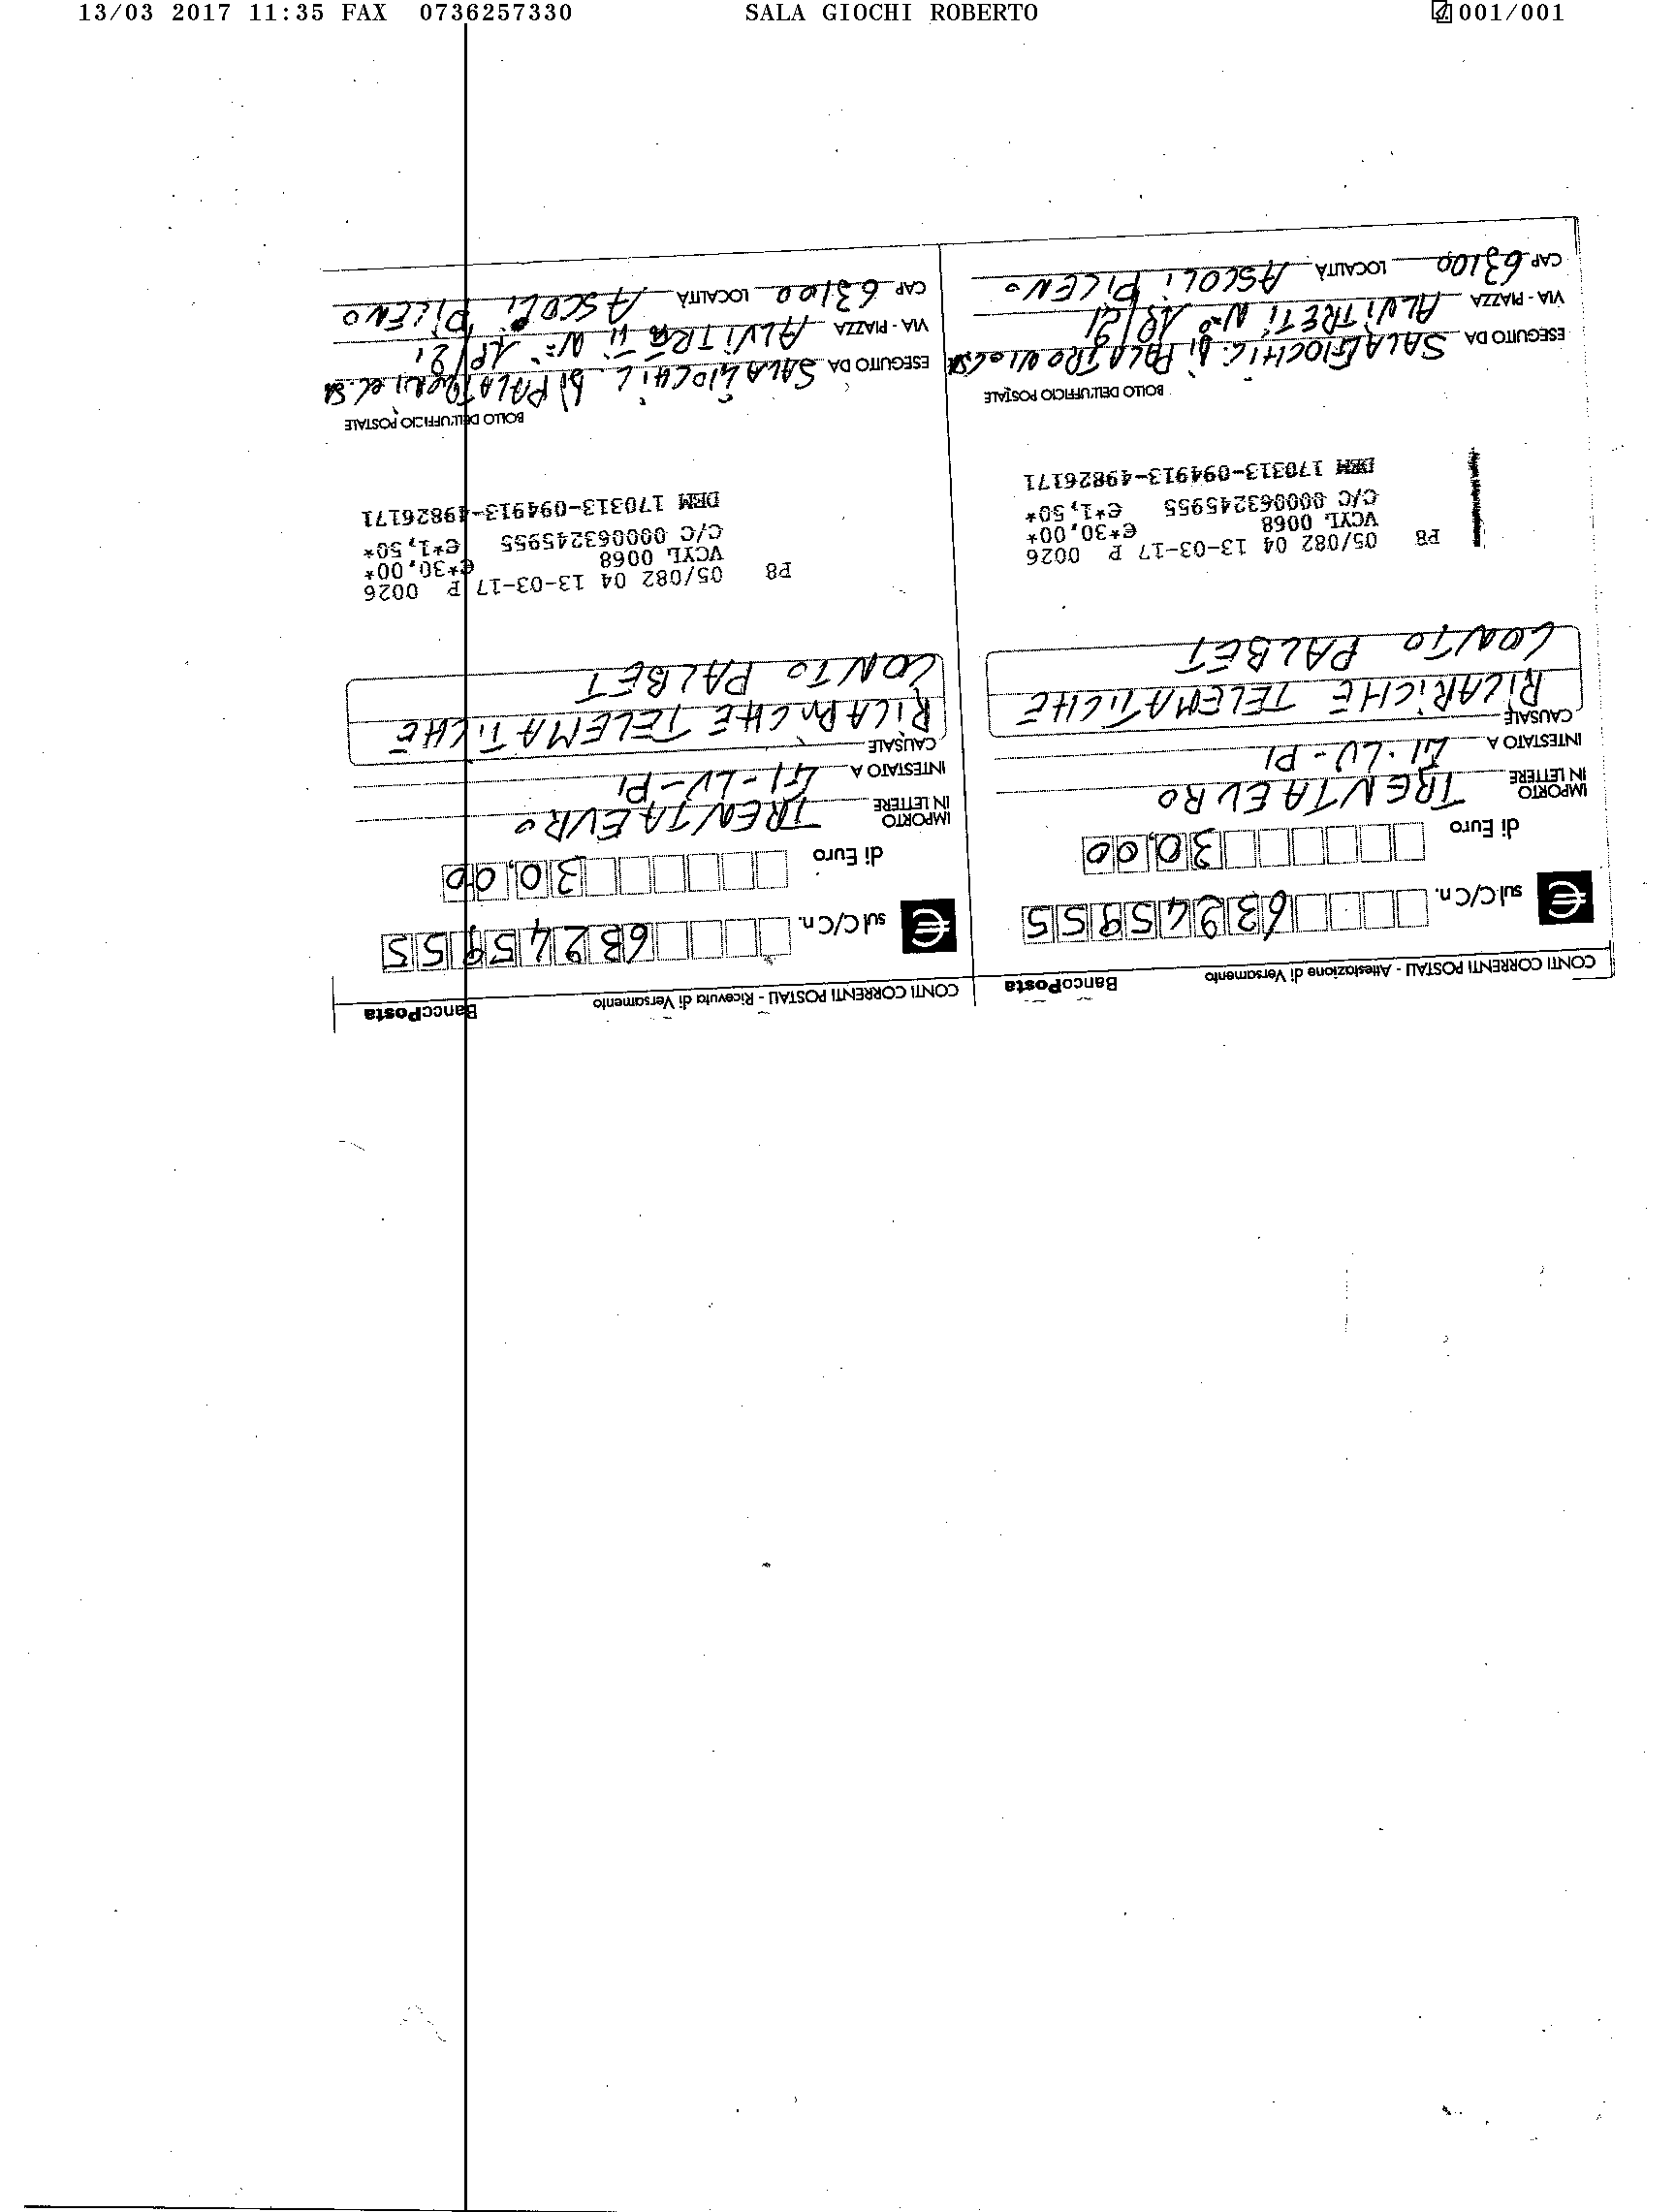 13/03 2017 11:35 FAX 0736257330 SALA GIOCHI ROBERTO 001/001
CONTI CORRENTI POSTALI - Attestazione di Versamento BancoPosta
€ sul C/C n. 63245955
di Euro 30,00
IMPORTO IN LETTERE TRENTAEURO
INTESTATO A GI-LU-PI
CAUSALE
RICARICHE TELEMATICHE
CONTO PALBET
P8 05/082 04 13-03-17 P 0026
VCYL 0068 €*30,00*
C/C 000063245955 €*1,50*
DEM 170313-094913-49826171
BOLLO DELL'UFFICIO POSTALE
ESEGUITO DA SALA GIOCHI
VIA - PIAZZA
CAP 63100 LOCALITÀ ASCOLI PICENO
CONTI CORRENTI POSTALI - Ricevuta di Versamento BancoPosta
€ sul C/C n. 63245955
di Euro 30,00
IMPORTO IN LETTERE TRENTAEURO
INTESTATO A GI-LU-PI
CAUSALE
RICARICHE TELEMATICHE
CONTO PALBET
P8 05/082 04 13-03-17 P 0026
VCYL 0068 €*30,00*
C/C 000063245955 €*1,50*
DEM 170313-094913-49826171
BOLLO DELL'UFFICIO POSTALE
ESEGUITO DA SALA GIOCHI
VIA - PIAZZA
CAP 63100 LOCALITÀ ASCOLI PICENO